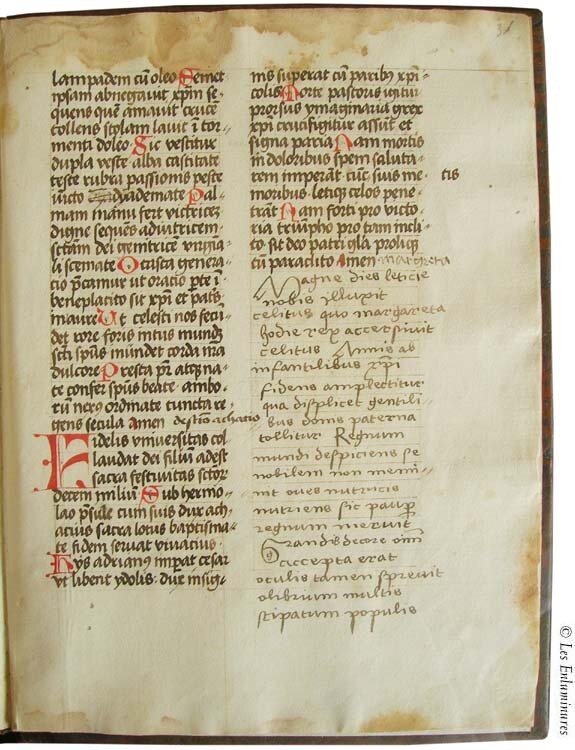 31
lampadem cū oleo Semet
ipsam abnegavit xp̄m se
quens quē amavit crucē
tollens stolam lavit ī tor
menti doleo Sic vestitur
dupla veste alba castitate
teste rubra passionis peste
victo dyademate Pal
mam manu fert victricē
digne sequēs adiutricem
li scemate O casta genera
tio p̄camur ut oratio
beneplacito sit xp̄i et patīs
maure Ut celesti nos fecū
det rore foris intus mundꝫ
scī spūs mundet corda ma
dulcore Presta pr̄
te confer spūs beate ambo
rū nexus ordinate cuncta re
gens secula amen de scō achacio
Fidelis universitas col
laudat dei filiū adest
sacra festivitas sctōr
decem miliū Sub hermo
lao p̄sule cum suis dux ach
acius sacra lotus baptisma
te fidem servat vivacius
Hijs adrianus īperat cesar
ut libent ydolis due insig
nis superat cū paribꝫ xp̄i
colis Morte pastoris igitur
prorsus ymaginaria grex
xp̄i crucifigitur assūt et
signa paria Nam mortis
in doloribus spem saluta
rem imperāt cūc suis me tis
moribus letiqꝫ celos pene
trāt Nam forti pro victo
ria triūpho pro tam incli
to sit deo patri gl̄a proliqꝫ
cū paraclito Amen margreta
Magne dies leticie
nobis illuxit
celitus quo margareta
hodie rex accersivit
celitus Annis ab
infantilibus xp̄i
fidens amplectitur
qua displicet gentili
bus domꝫ paterna
tollitur Regnum
mundi despiciens se
nobilem non memi
nit oves nutricis
nutriens sic paup̄
regnum meruit
Grandis decore om̄i
accepta erat
oculis tamen sprevit
olibrium multis
stipatum populis
© Les Enluminures